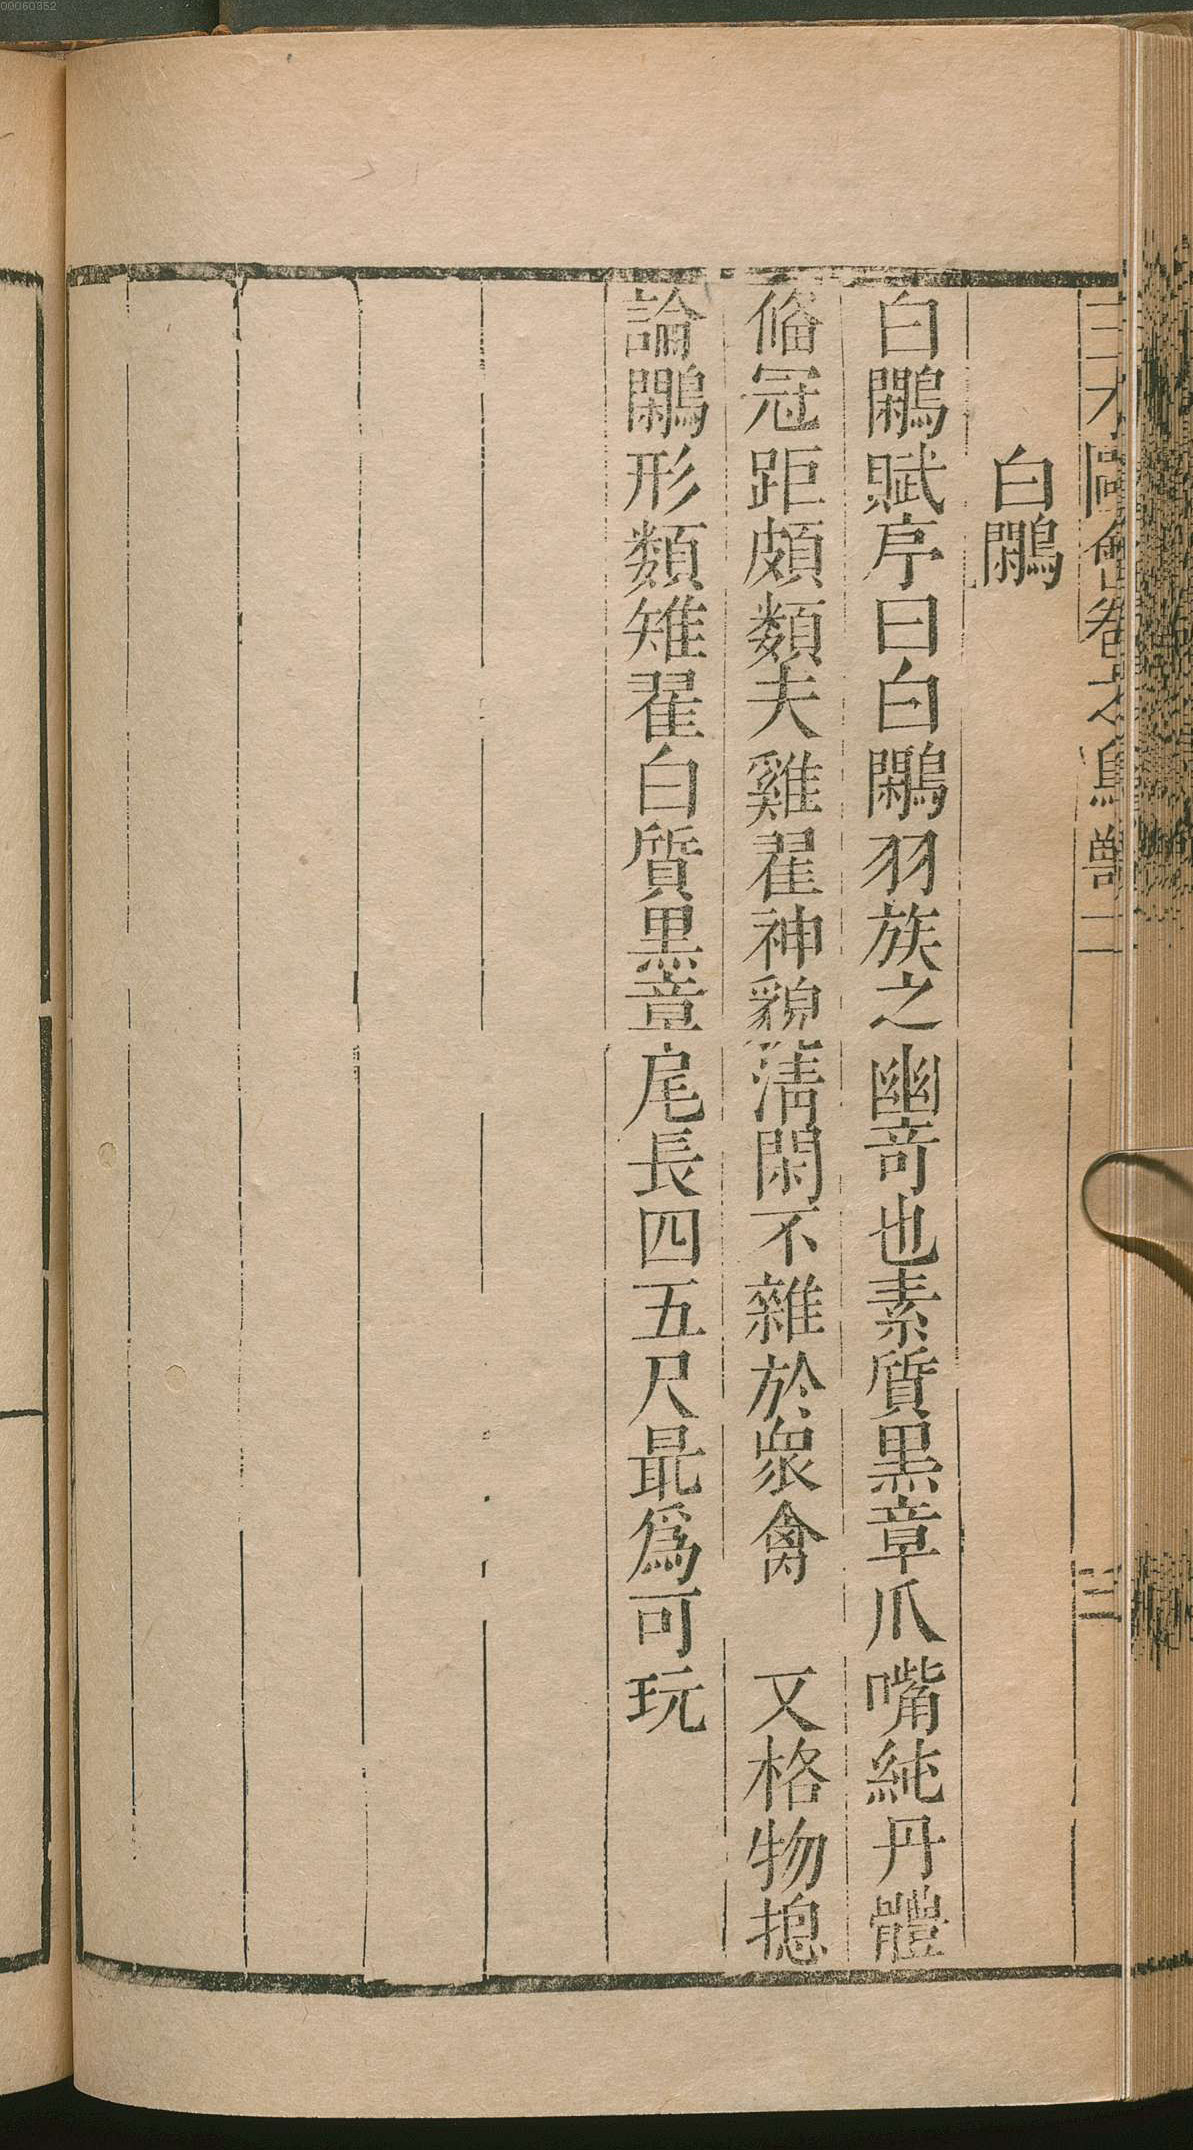 00060352
三才圖會卷之鳥獸二
三
白鷴
白鷴賦序曰白鷴羽族之幽奇也素質黒章爪嘴純丹體
脩冠距頗類夫雞翟神貌清閑不雜於衆禽　又格物揔
論鷴形類雉翟白質黒章尾長四五尺最爲可玩